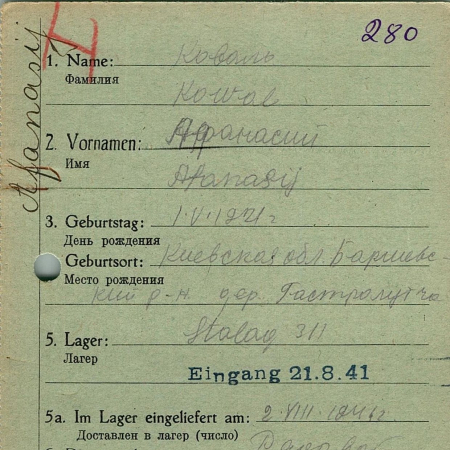 280
Afanasij
I
1. Name: Коваль
Фамилия
Kowal
2. Vornamen: Афанасий
Имя
Afanasij
3. Geburtstag: 1.V.1921 г
День рождения
Geburtsort: Киевская обл. Баришевс-
Место рождения
кий р-н. дер.
5. Lager: Stalag 311
Лагер
Eingang 21.8.41
5a. Im Lager eingeliefert am: 2.VIII.1941г.
Доставлен в лагер (число)